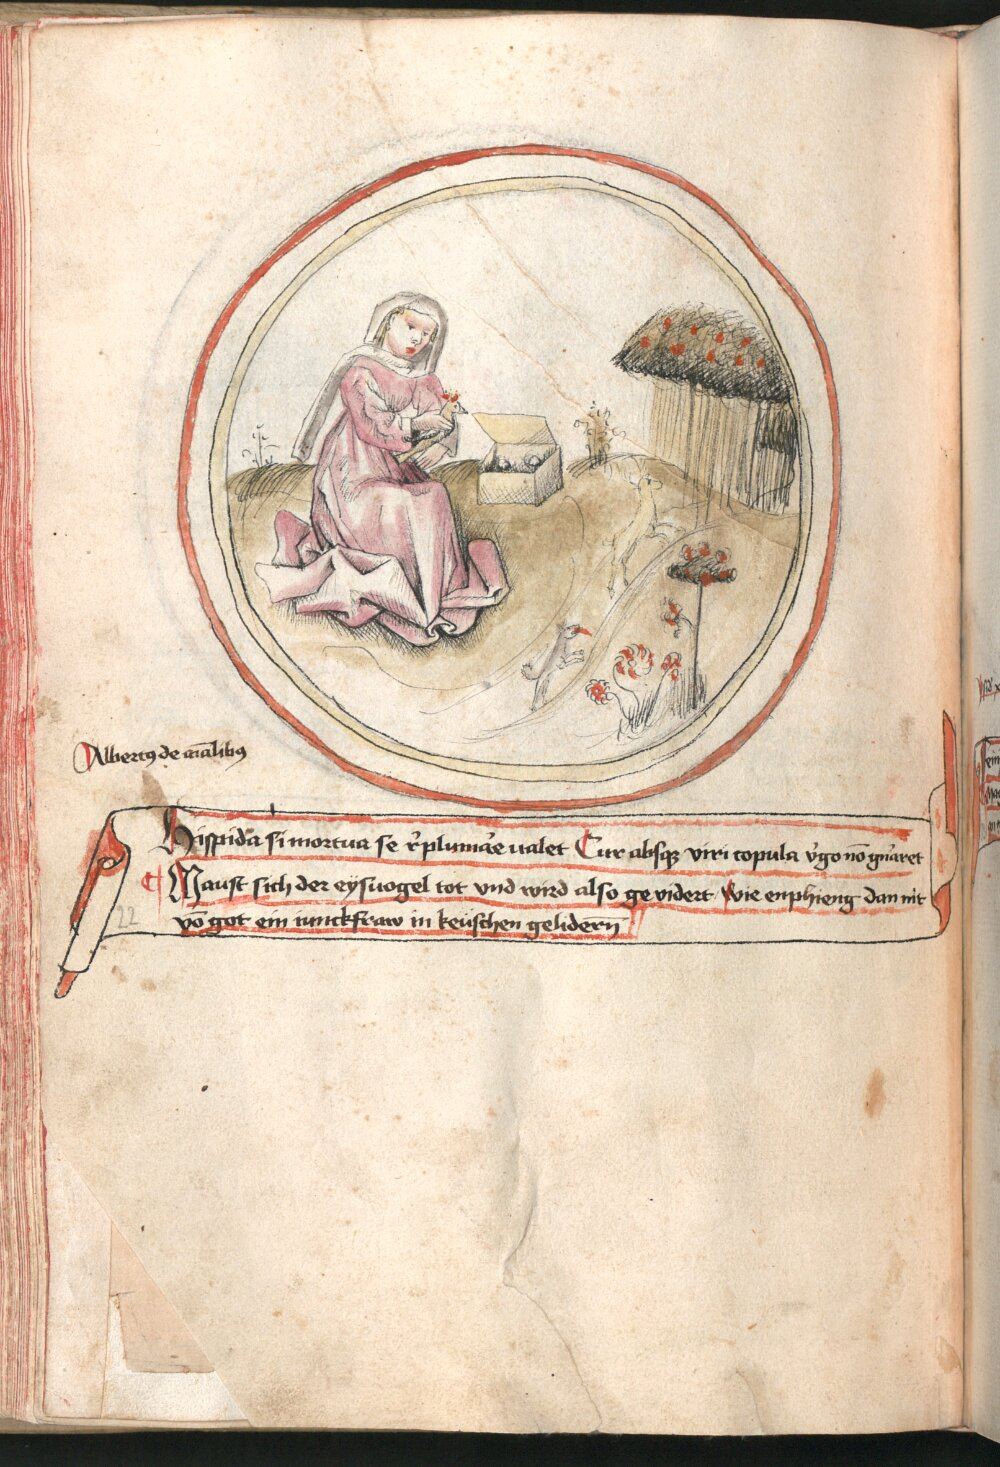 Albertꝰ de aīalibꝰ
Hispida si mortua se r̄plumāe ualet Cur absqꝫ viri copula v̓go nō gn̄aret
¶ Maust sich der eyſuogel tot vnd wird also gevidert wie enphieng dan nit
vō got ein iunckfraw in keüſchen gelidern̄
22